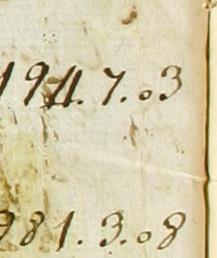 194.7.03
981.3.08